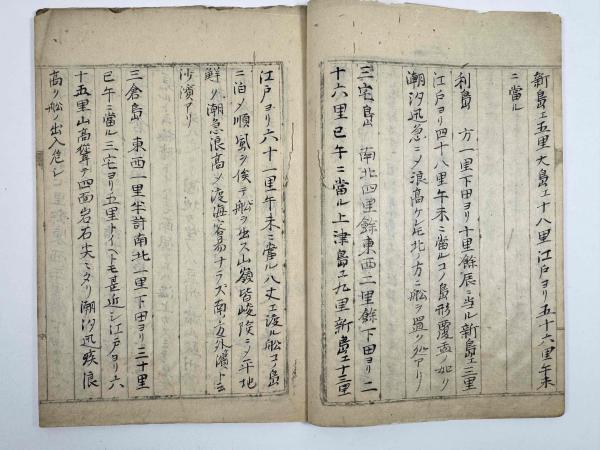 新島エ五里大島エ十八里江戸ヨリ五十六里午未
ニ當ル
利島 方一里下田ヨリ十里餘辰ニ当ル新島エ三里
江戸ヨリ四十八里午未ニ當ルコノ島形覆盃ノ如ク
潮汐迅急ニメ浪高ケレ𪜈北ノ方ニ船ヲ置ク処アリ
三宅島 南北四里餘東西二里餘下田ヨリ二
十六里巳午ニ當ル上津島エ九里新島エ十三里
江戸ヨリ六十一里午未ニ當ル八丈エ渡ル船コノ島
ニ泊メ順風ヲ俟テ船ヲ出ス山嶺皆峻険ニメ平地
鮮ク潮急浪高メ渡海容易ナラズ南ノ方外濱ト云
沙濱アリ
三倉島 東西一里半許南北一里下田ヨリ三十里
巳午ニ當ル三宅ヨリ五里トイヘトモ甚近シ江戸ヨリ六
十五里山高聳テ四面岩石尖ニメ潮汐迅疾浪
高ク船ノ出入危シ